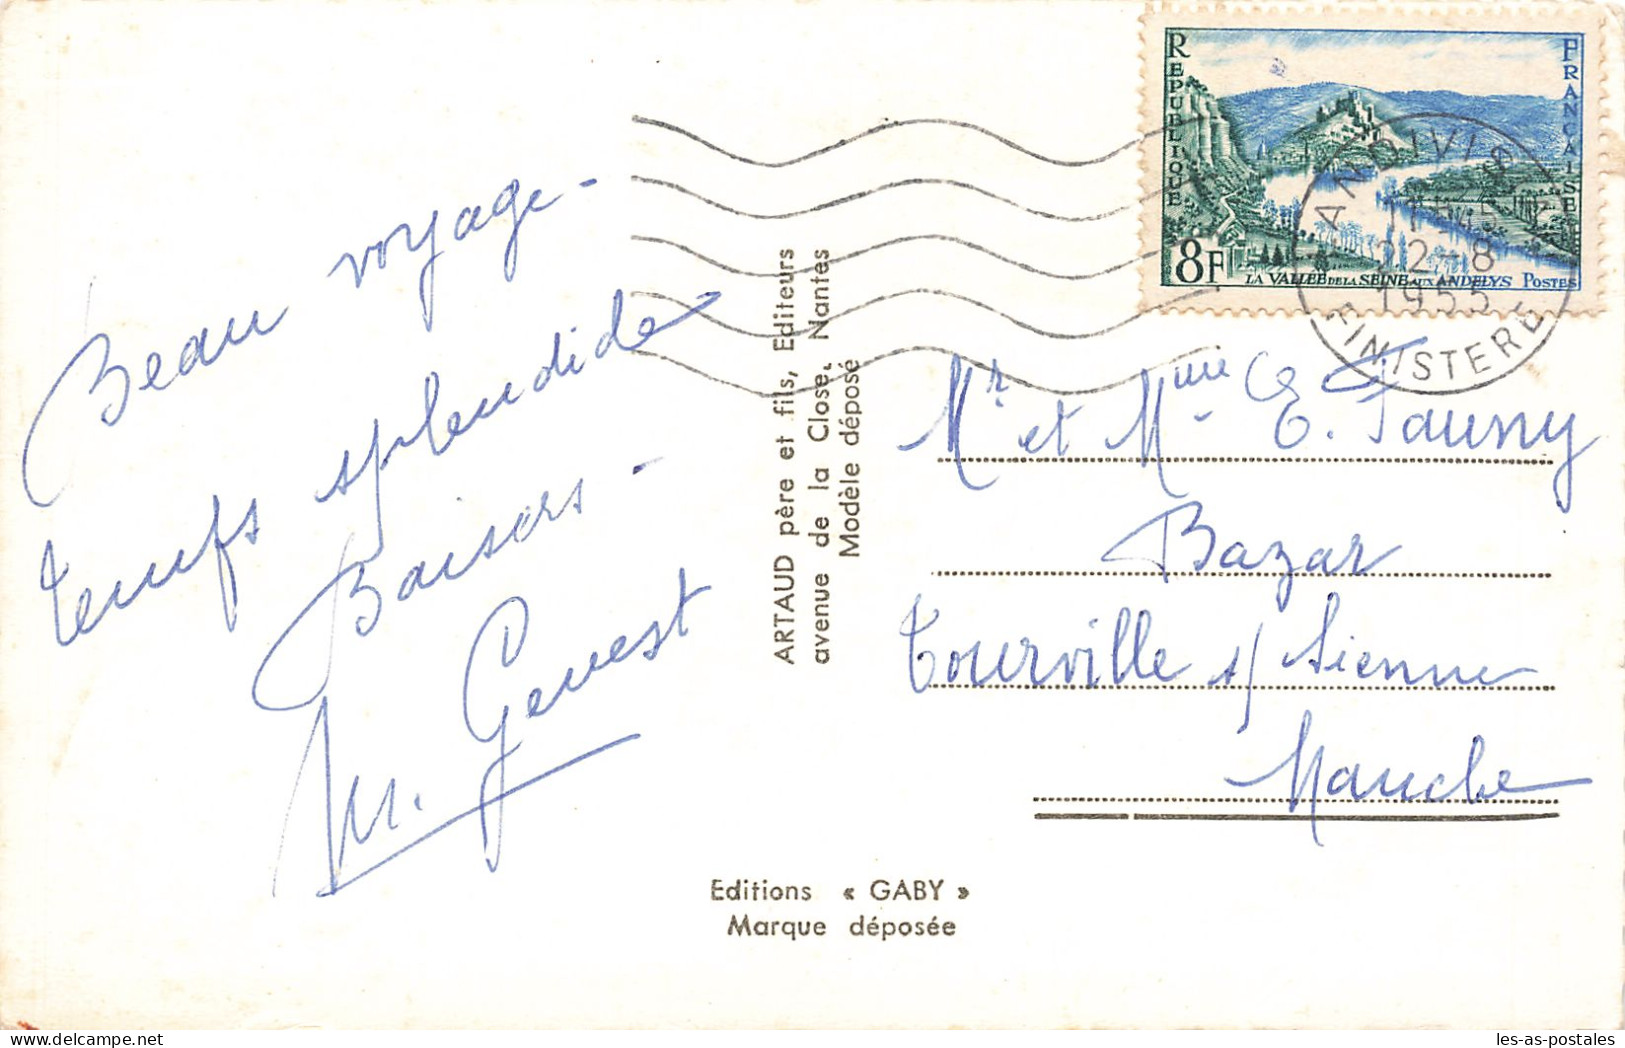 Beau voyage -
temps splendide
Baisers -
M. Genest
ARTAUD père et fils, Editeurs
avenue de la Close, Nantes
Modèle déposé
Editions « GABY »
Marque déposée
REPUBLIQUE
FRANÇAISE
8F
LA VALLÉE DE LA SEINE AUX ANDELYS POSTES
LANDIVIS
22-8
1955
FINISTERE
Mr et Mme E.
Bazar
Tourville s/ Sienne
Manche
les-as-postales